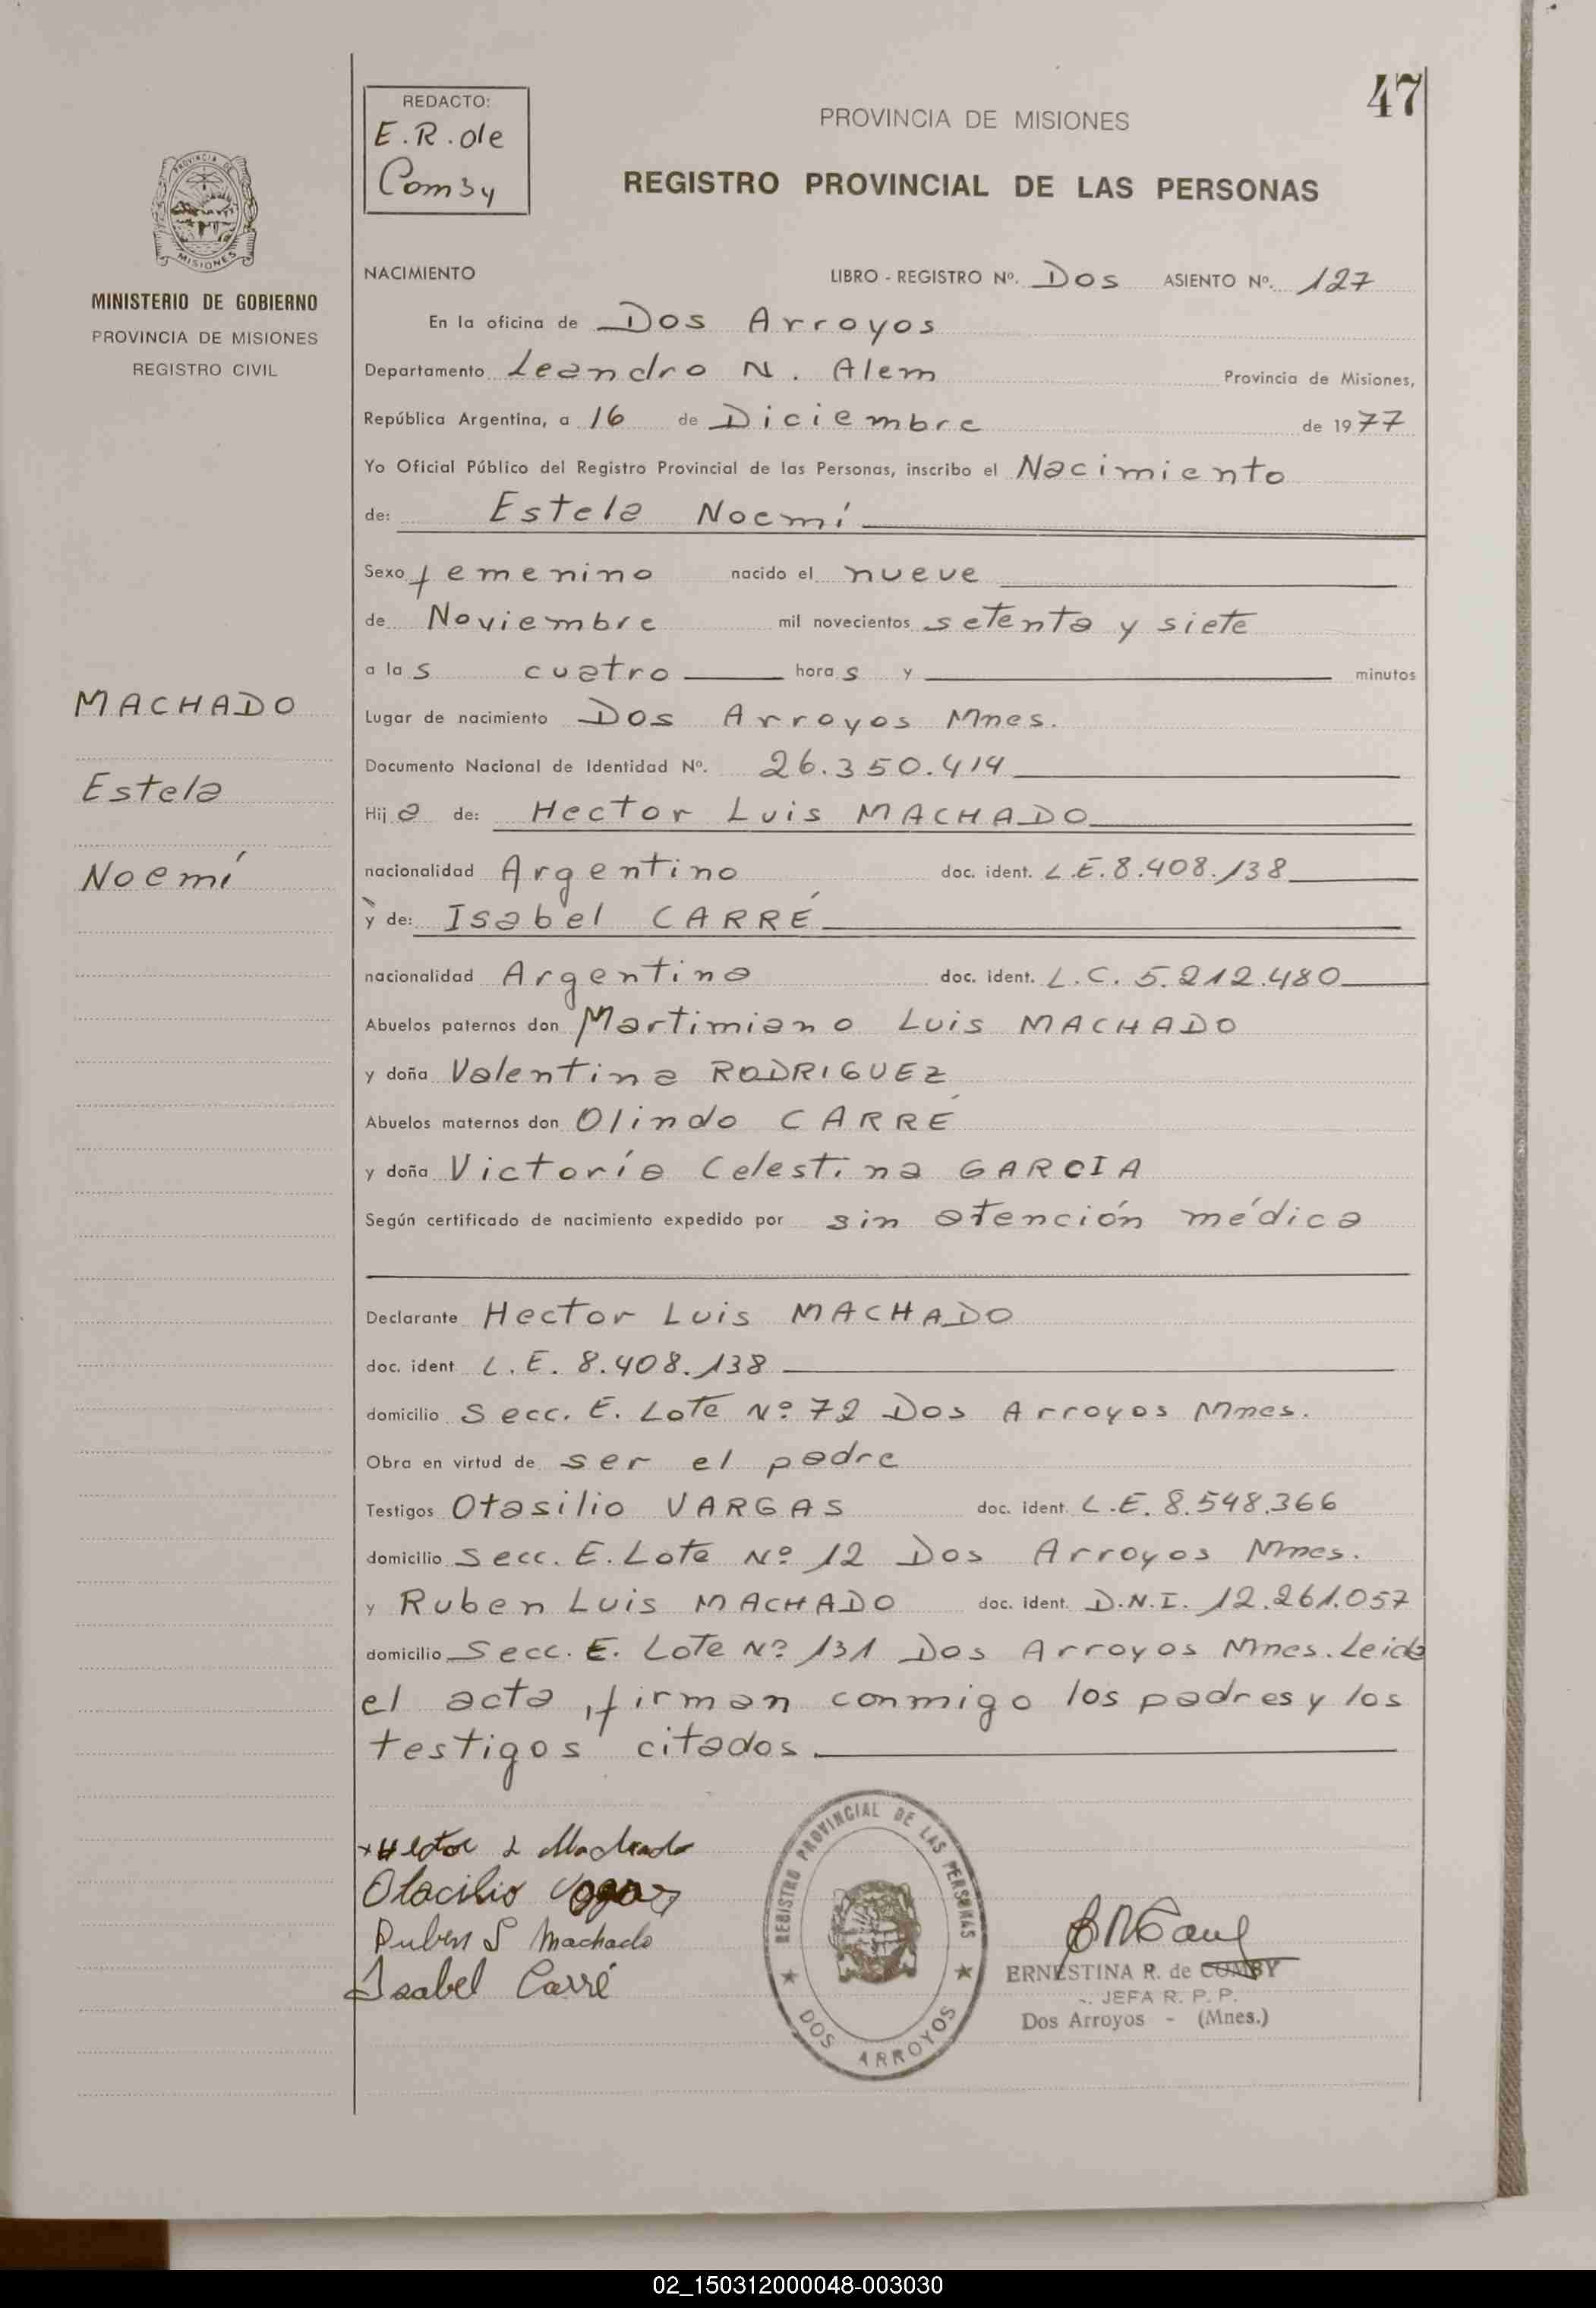 47
REDACTO:
E.R. de
Comby
PROVINCIA DE MISIONES
REGISTRO PROVINCIAL DE LAS PERSONAS
PROVINCIA DE
MISIONES
MINISTERIO DE GOBIERNO
PROVINCIA DE MISIONES
REGISTRO CIVIL
MACHADO
Estela
Noemí
NACIMIENTO LIBRO - REGISTRO Nº. Dos ASIENTO Nº. 127
En la oficina de Dos Arroyos
Departamento Leandro N. Alem Provincia de Misiones,
República Argentina, a 16 de Diciembre de 1977
Yo Oficial Público del Registro Provincial de las Personas, inscribo el Nacimiento
de: Estela Noemí
Sexo femenino nacido el nueve
de Noviembre mil novecientos setenta y siete
a las cuatro horas y minutos
Lugar de nacimiento Dos Arroyos Mnes.
Documento Nacional de Identidad Nº. 26.350.414
Hija de: Hector Luis MACHADO
nacionalidad Argentino doc. ident. L.E. 8.408.138
y de: Isabel CARRÉ
nacionalidad Argentina doc. ident. L.C. 5.212.480
Abuelos paternos don Martimiano Luis MACHADO
y doña Valentina RODRIGUEZ
Abuelos maternos don Olindo CARRÉ
y doña Victoría Celestina GARCIA
Según certificado de nacimiento expedido por sin atención médica
Declarante Hector Luis MACHADO
doc. ident. L.E. 8.408.138
domicilio Secc. E. Lote Nº 72 Dos Arroyos Mnes.
Obra en virtud de ser el padre
Testigos Otasilio VARGAS doc. ident. L.E. 8.548.366
domicilio Secc. E. Lote Nº 12 Dos Arroyos Mnes.
y Ruben Luis MACHADO doc. ident. D.N.I. 12.261.057
domicilio Secc. E. Lote Nº 131 Dos Arroyos Mnes. Leida
el acta, firman conmigo los padres y los
testigos citados.
Hector L Machado
Otacilio
Ruben L Machado
Isabel Carré
REGISTRO PROVINCIAL DE LAS PERSONAS
DOS ARROYOS
ERNESTINA R. de COMBY
JEFA R. P. P.
Dos Arroyos - (Mnes.)
02_150312000048-003030